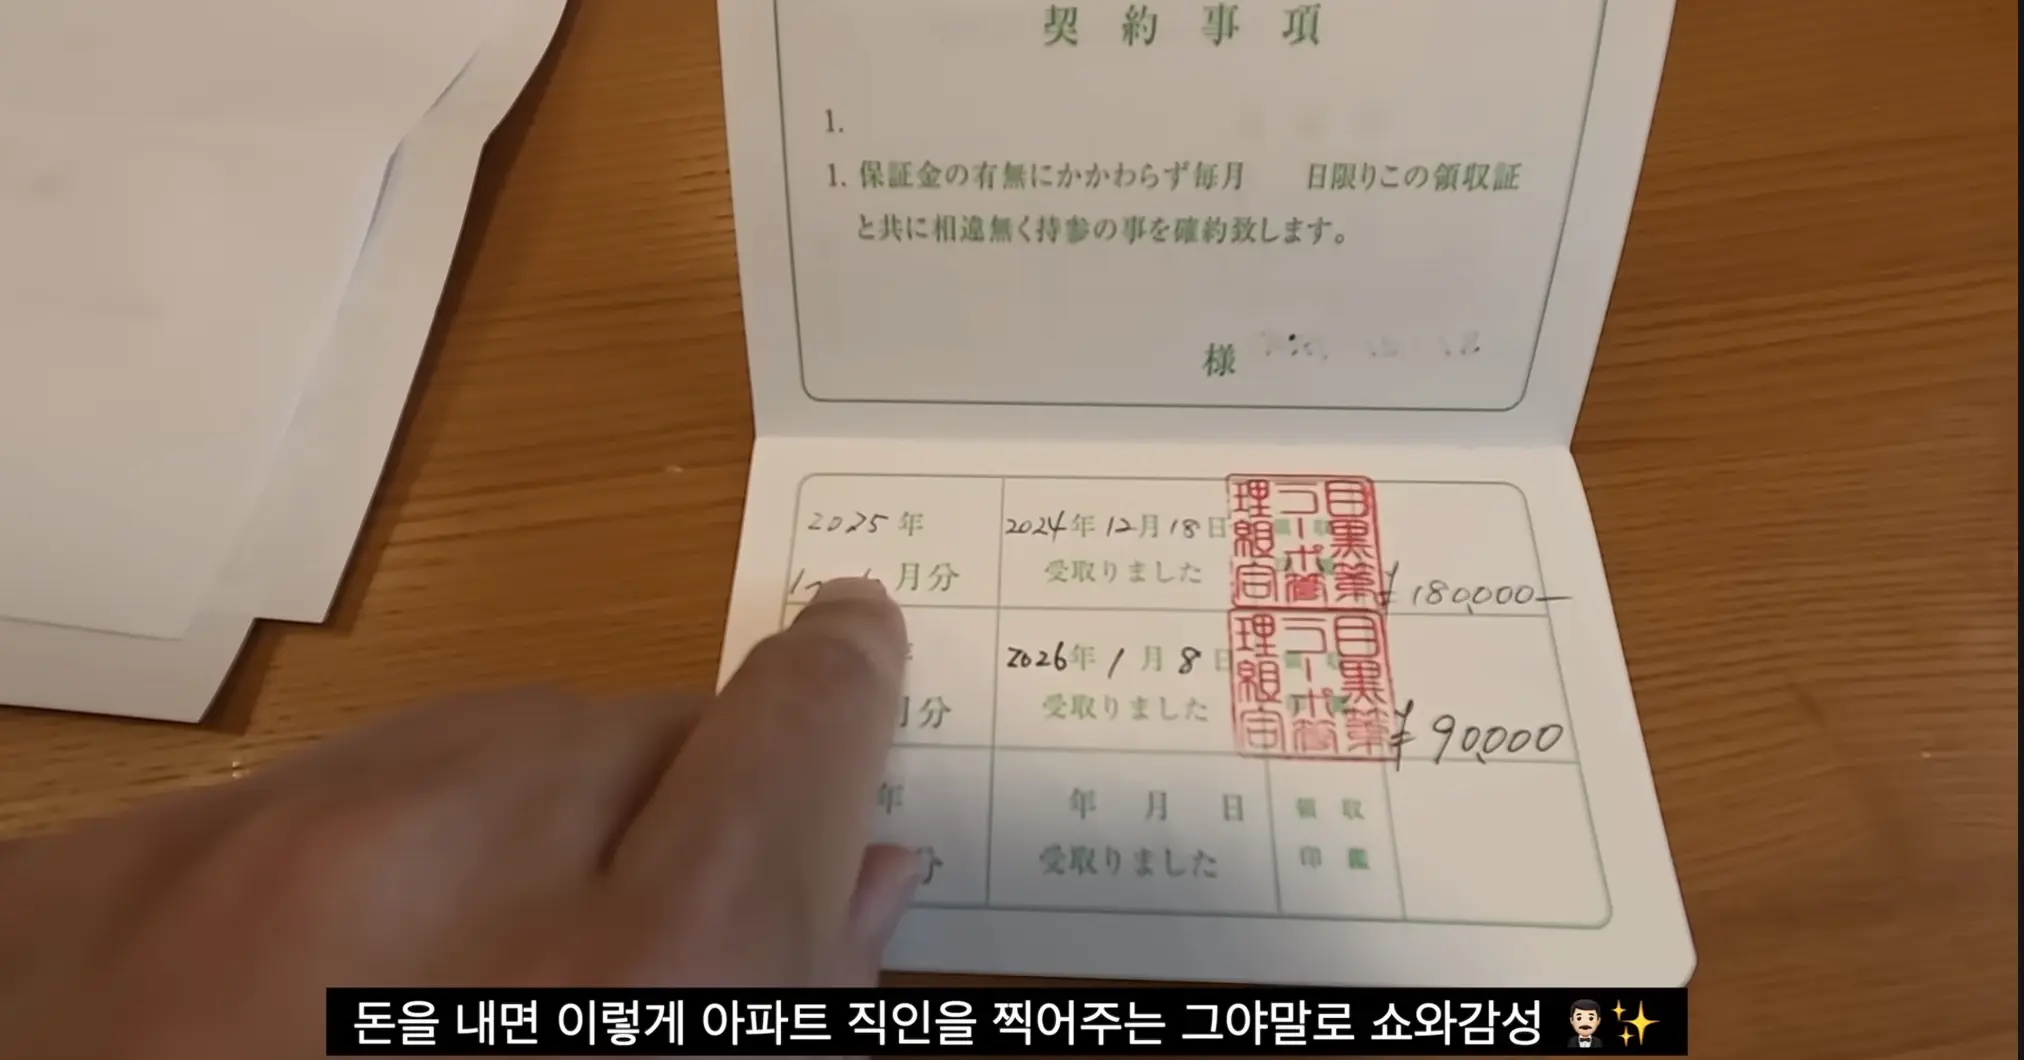 契約事項
1.
1. 保証金の有無にかかわらず毎月 日限りこの領収証
と共に相違無く持参の事を確約致します。
様
2025年
月分
2024年12月18日
受取りました
目黒第
一コーポ管
理組合
¥180,000—
2026年1月8日
受取りました
月分
目黒第
一コーポ管
理組合
¥90,000
年
分
年 月 日
受取りました
領収
印鑑
돈을 내면 이렇게 아파트 직인을 찍어주는 그야말로 쇼와감성 🤵🏻✨